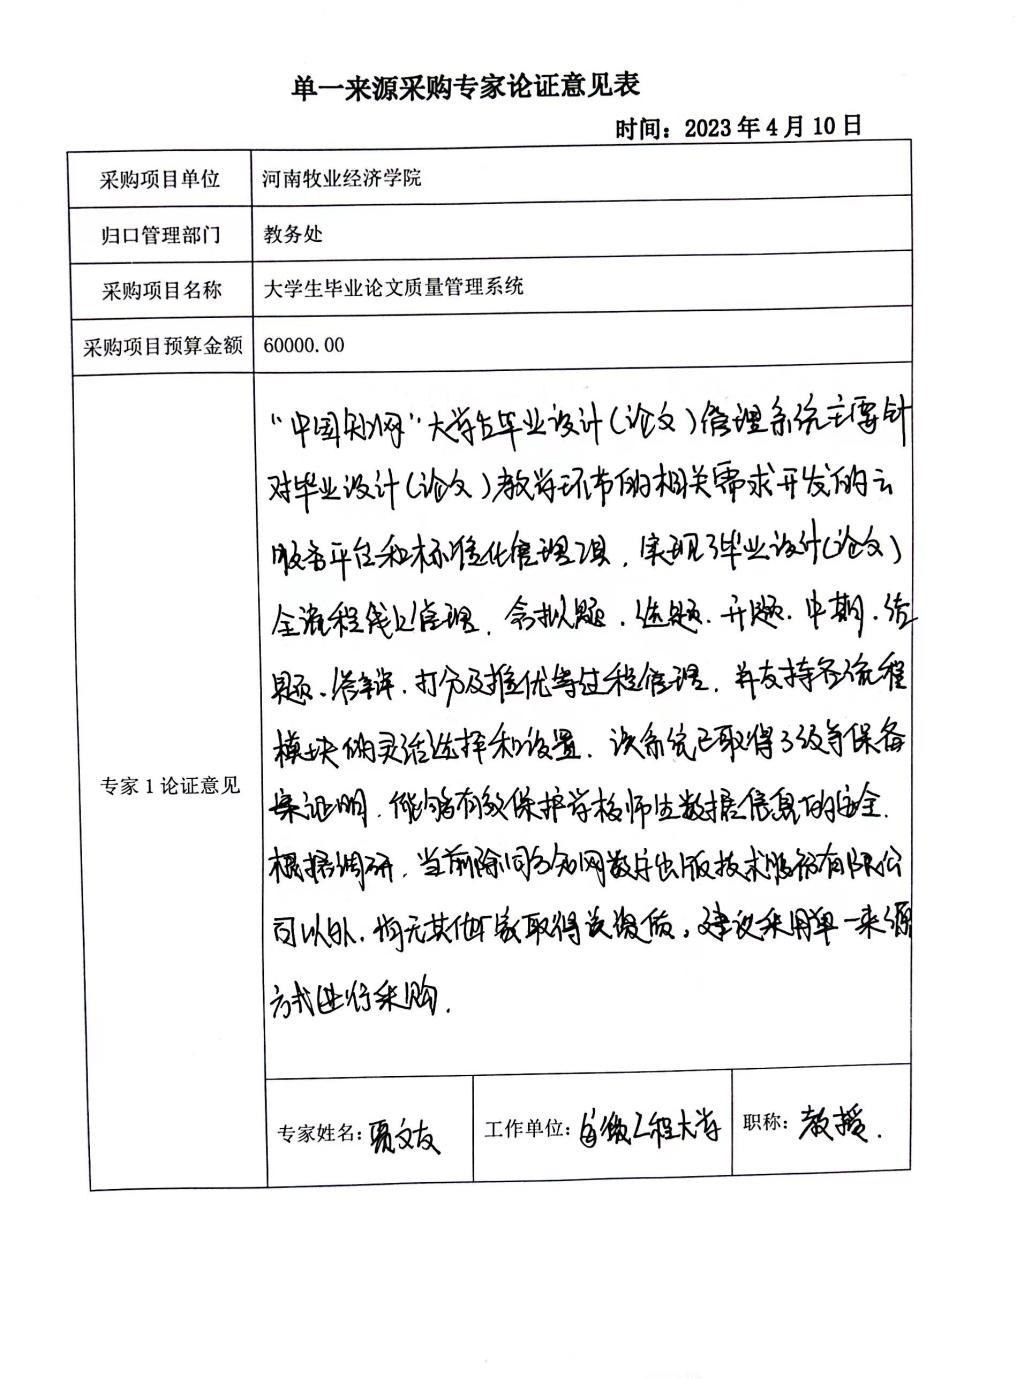 单一来源采购专家论证意见表
时间：2023年4月10日
采购项目单位 河南牧业经济学院
归口管理部门 教务处
采购项目名称 大学生毕业论文质量管理系统
采购项目预算金额 60000.00
专家1论证意见
“中国知网”大学生毕业设计(论文)管理系统主要针
对毕业设计(论文)教学环节的相关需求开发的云
服务平台和标准化管理工具，实现了毕业设计(论文)
全流程线上管理，含拟题、选题、开题、中期、结
题、答辩、打分及推优等过程管理，并支持各流程
模块的灵活选择和设置。该系统已取得了级等保备
案证明，能够有效保护学校师生数据信息的安全。
根据调研，当前除同方知网数字出版技术股份有限公
司以外，尚无其他厂家取得该资质。建议采用单一来源
方式进行采购。
专家姓名：文友 工作单位：工程大学 职称：教授.